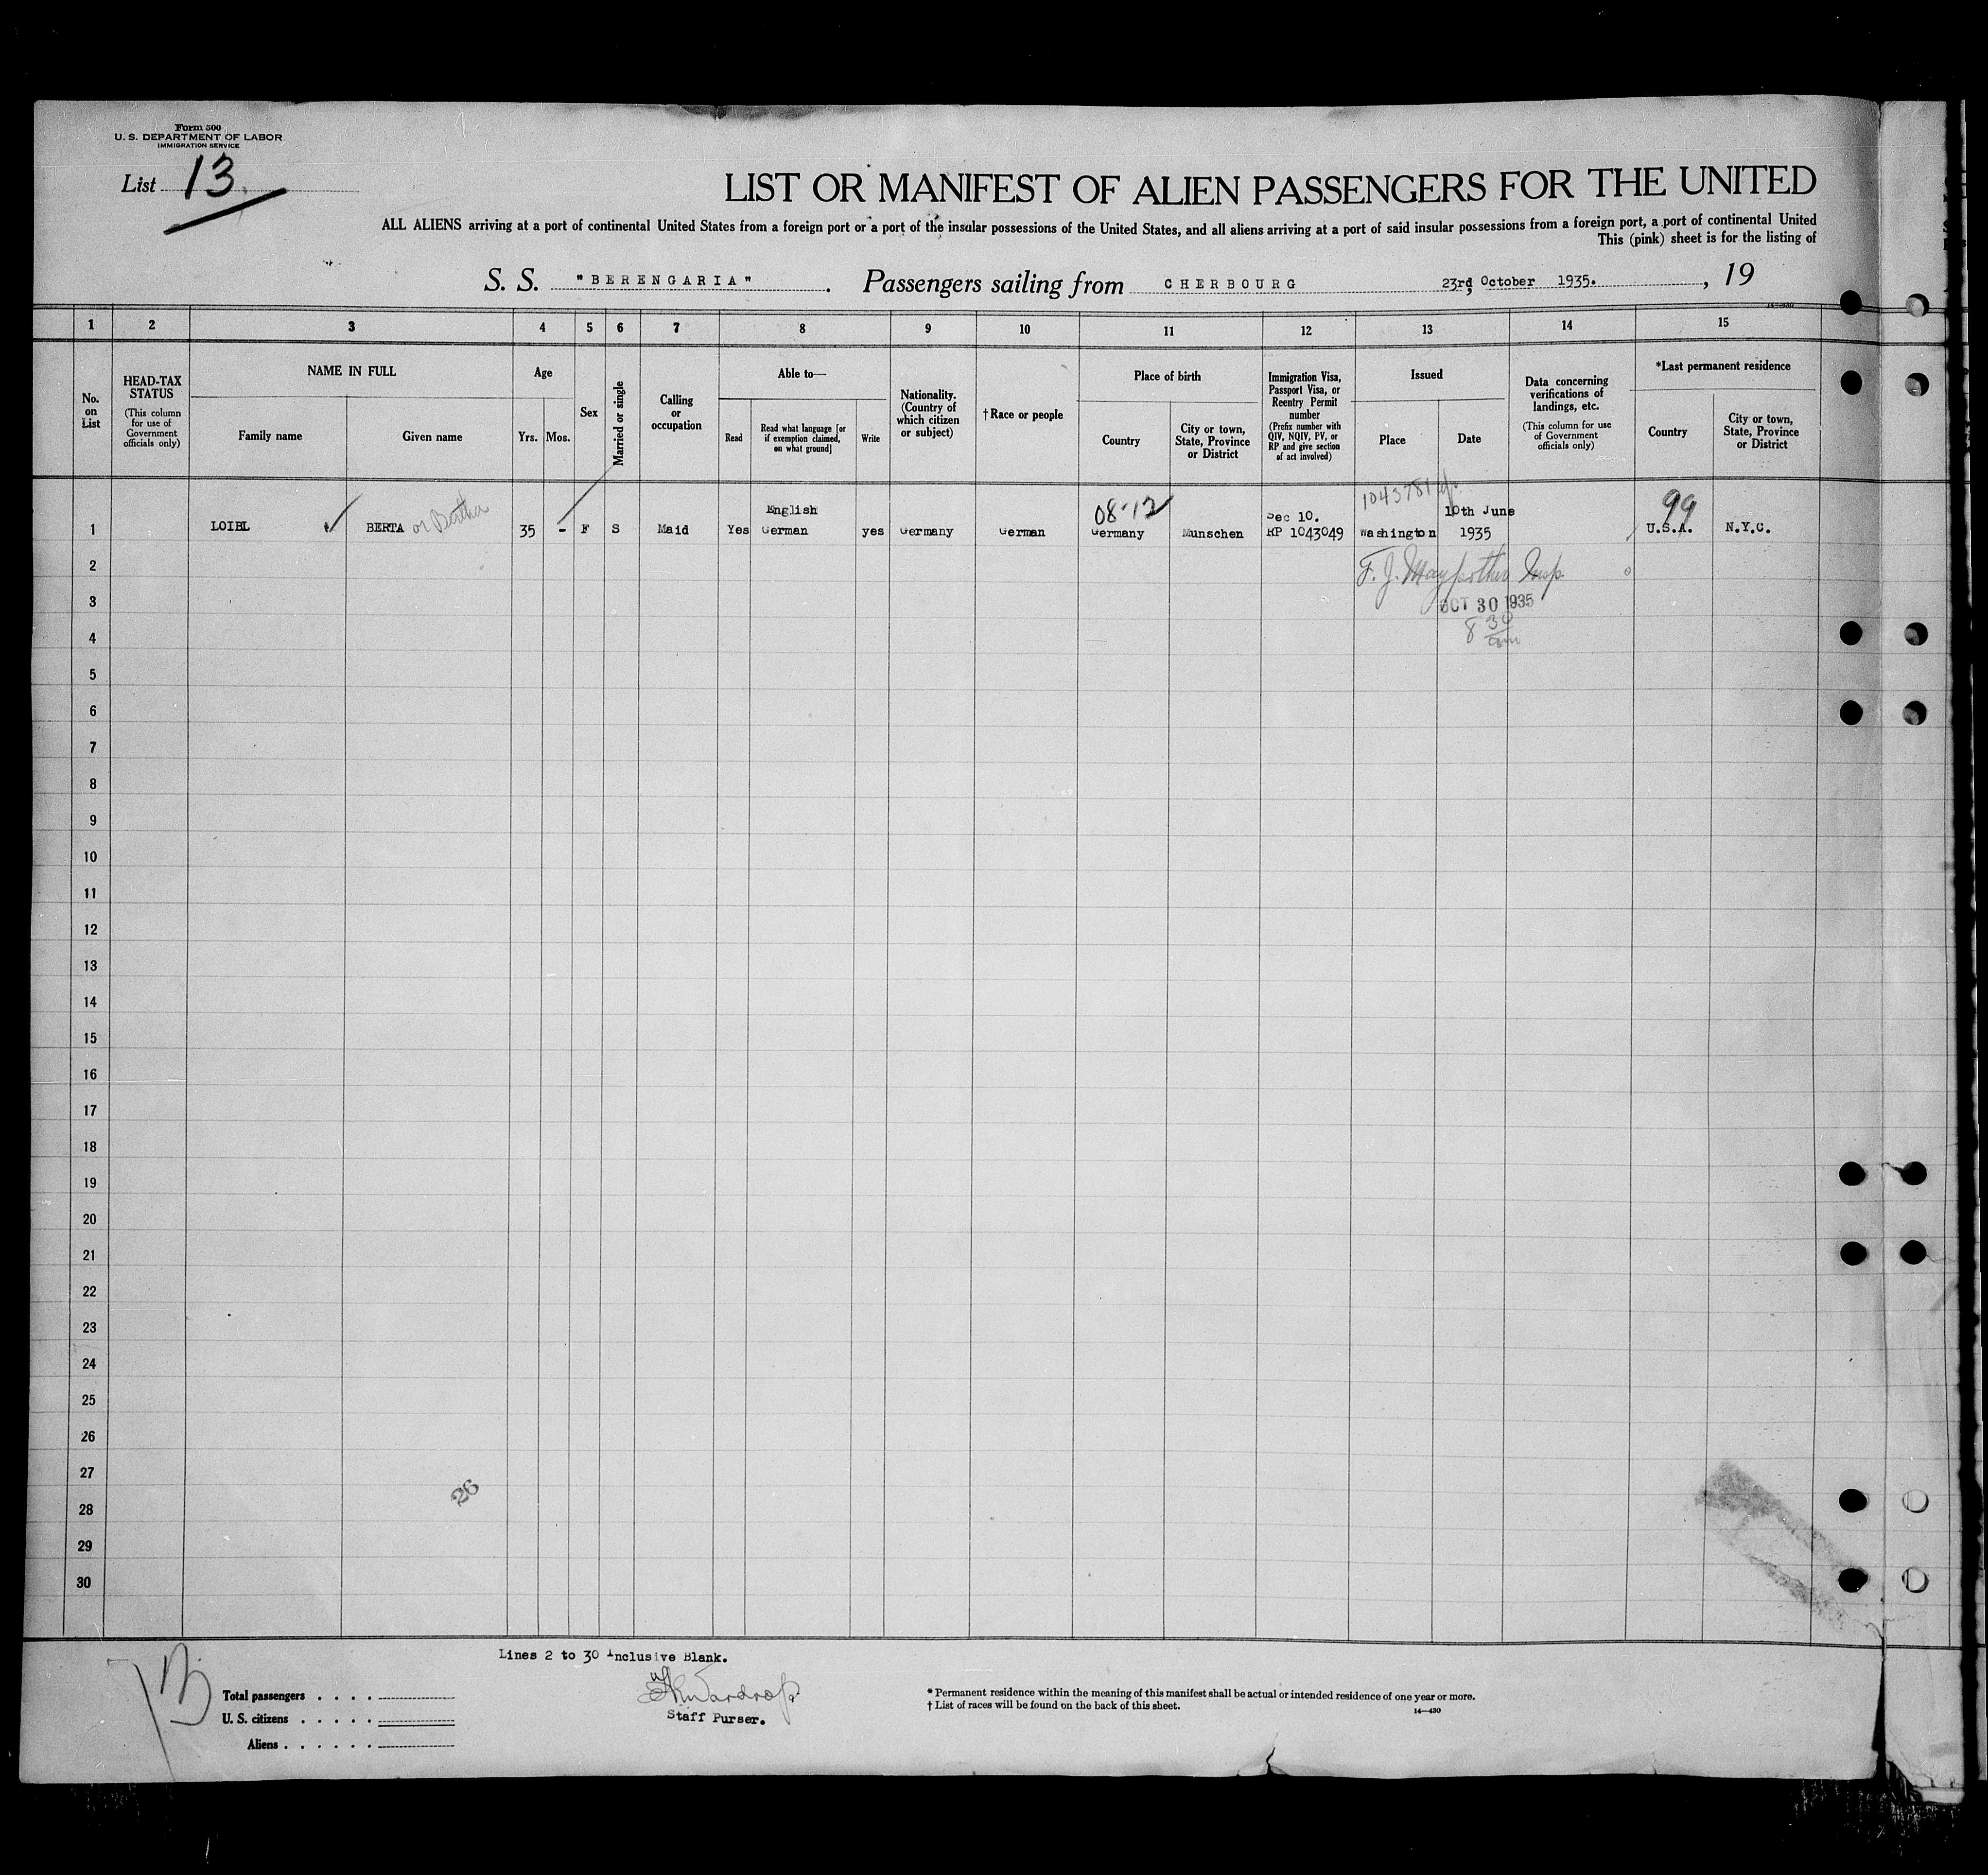 Form 500
U. S. DEPARTMENT OF LABOR
IMMIGRATION SERVICE
List 13
LIST OR MANIFEST OF ALIEN PASSENGERS FOR THE UNITED
ALL ALIENS arriving at a port of continental United States from a foreign port or a port of the insular possessions of the United States, and all aliens arriving at a port of said insular possessions from a foreign port, a port of continental United
This (pink) sheet is for the listing of
S. S. "BERENGARIA" . Passengers sailing from CHERBOURG 23rd October 1935. , 19
14—430
1 2 3 4 5 6 7 8 9 10 11 12 13 14 15
No. on List
HEAD-TAX STATUS
(This column for use of Government officials only)
NAME IN FULL
Family name
Given name
Age
Yrs. Mos.
Sex
Married or single
Calling or occupation
Able to—
Read
Read what language [or if exemption claimed, on what ground]
Write
Nationality. (Country of which citizen or subject)
†Race or people
Place of birth
Country
City or town, State, Province or District
Immigration Visa, Passport Visa, or Reentry Permit number
(Prefix number with QIV, NQIV, PV, or RP and give section of act involved)
Issued
Place
Date
Data concerning verifications of landings, etc.
(This column for use of Government officials only)
*Last permanent residence
Country
City or town, State, Province or District
English 08-12 Sec 10. 1043781 10th June 99
1 LOIBL BERTA or Bertha 35 - F S Maid Yes German yes Germany German Germany Munschen RP 1043049 Washington 1935 U.S.A. N.Y.C.
2 F. J. Insp.
3 OCT 30 1935
4 8 30 am
5
6
7
8
9
10
11
12
13
14
15
16
17
18
19
20
21
22
23
24
25
26
27
26
28
29
30
Lines 2 to 30 Inclusive Blank.
Total passengers . . . .
U. S. citizens . . . . .
Aliens . . . . . .
Staff Purser.
* Permanent residence within the meaning of this manifest shall be actual or intended residence of one year or more.
† List of races will be found on the back of this sheet.
14—430